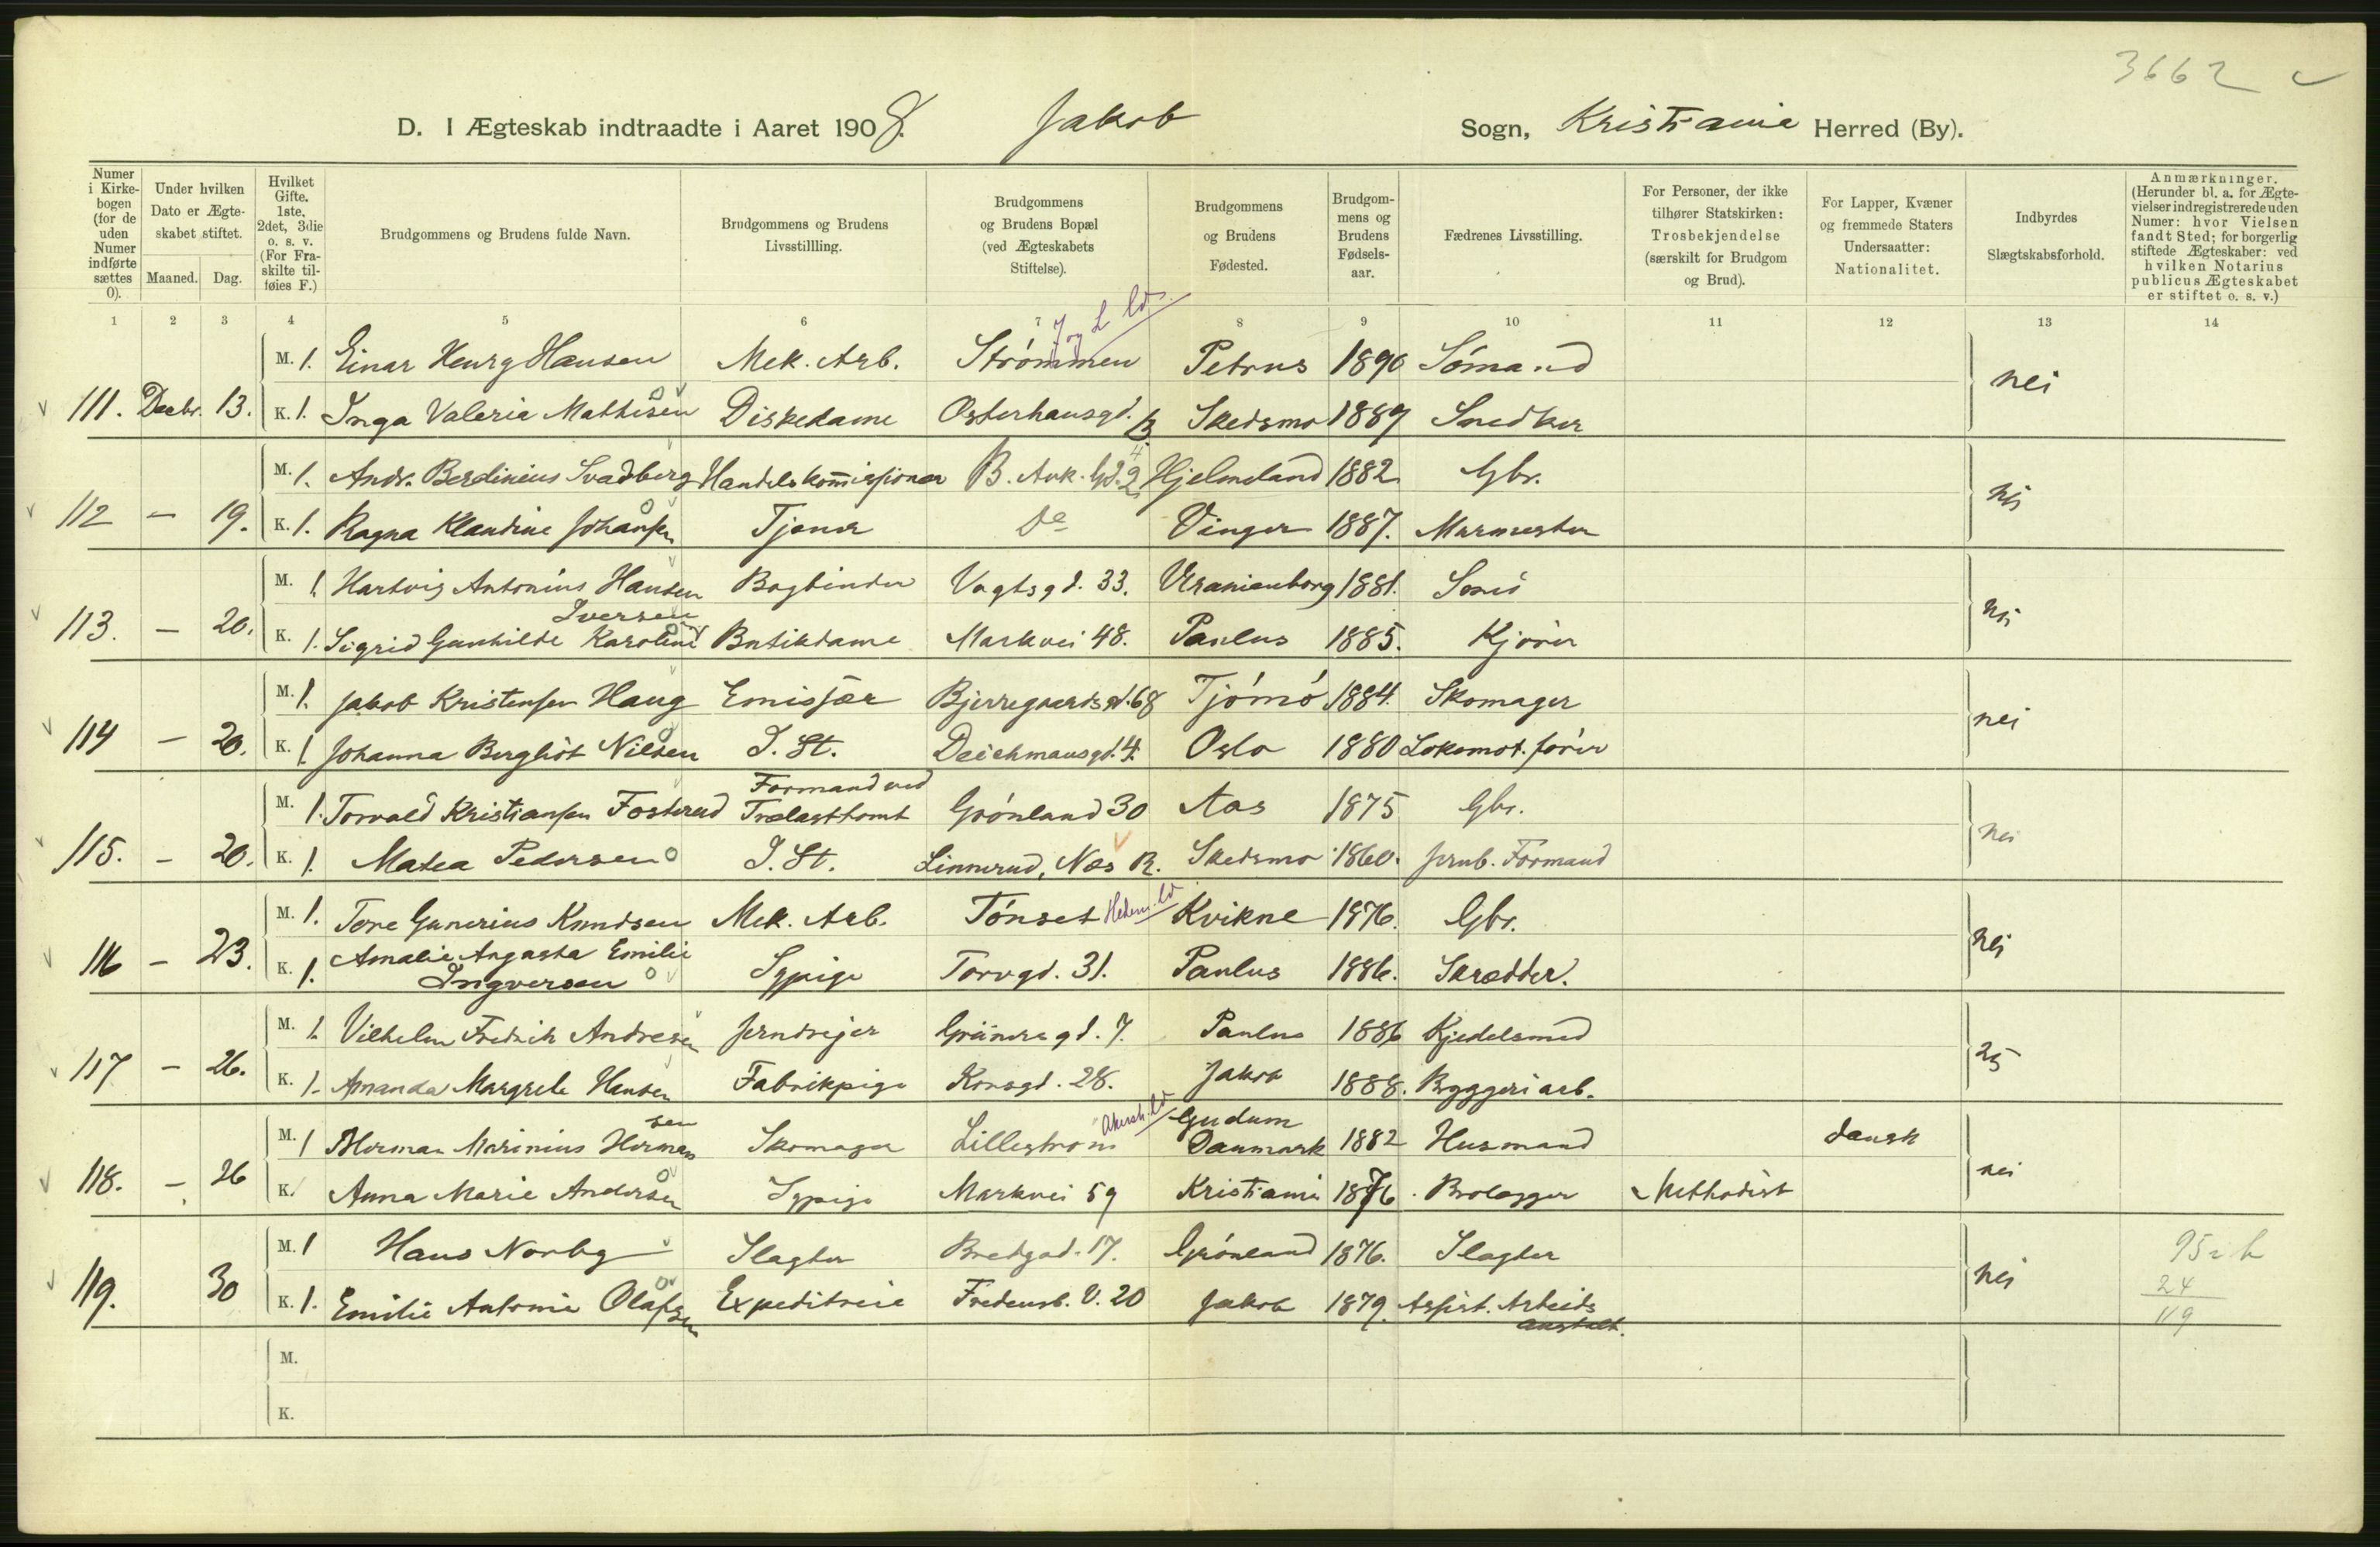 3662
D. I Ægteskab indtraadte i Aaret 1908. Jakob Sogn, Kristiania Herred (By).
Numer i Kirkebogen (for de uden Numer indførte sættes 0).
Under hvilken Dato er Ægteskabet stiftet.
Maaned. Dag.
Hvilket Gifte. 1ste, 2det, 3die o. s. v. (For Fraskilte tilføies F.)
Brudgommens og Brudens fulde Navn.
Brudgommens og Brudens Livsstillling.
Brudgommens og Brudens Bopæl (ved Ægteskabets Stiftelse).
Brudgommens og Brudens Fødested.
Brudgommens og Brudens Fødselsaar.
Fædrenes Livsstilling.
For Personer, der ikke tilhører Statskirken: Trosbekjendelse (særskilt for Brudgom og Brud).
For Lapper, Kvæner og fremmede Staters Undersaatter: Nationalitet.
Indbyrdes Slægtskabsforhold.
Anmærkninger. (Herunder bl. a. for Ægtevielser indregistrerede uden Numer: hvor Vielsen fandt Sted; for borgerlig stiftede Ægteskaber: ved hvilken Notarius publicus Ægteskabet er stiftet o. s. v.)
1 2 3 4 5 6 7 8 9 10 11 12 13 14
M. 1. Einar Henry Hansen Mek. Arb. Strømmen Petrus 1890 Sömand
111. Decbr. 13. K. 1. Inga Valeria Mathisen Diskedame Osterhausgd. 13 Skedsmo 1889 Snedker nei
M. 1. Andr. Berdinius Svadberg Handelskommissionær B. Ank. Gd. 2 Hjelmeland 1882 Gbr.
112 — 19. K. 1. Ragna Klaudine Johansen Tjener Do Vinger 1887. Murmester nei
M. 1. Hartvig Antonius Hansen Bogbinder Vogtsgd. 33. Uranienborg 1881. Smed
113. — 20. K. 1. Sigrid Gunhilde Karoline Iversen Butikdame Markvei 48. Paulus 1885. Kjører nei
M. 1. Jakob Kristensen Haug Emissær Bjerregaardsgd. 68 Tjömö 1884. Skomager
114 — 20. K. 1. Johanna Bergliot Nilsen I. St. Deichmansgd. 4. Oslo 1880 Lokomot. fører nei
M. 1. Torvald Kristiansen Fosterud Formand ved Trælasttomt Grönland 30 Aas 1875 Gbr.
115. — 20. K. 1. Matea Pedersen I. St. Linnerud, Næs R. Skedsmo 1860. Jernb. Formand nei
M. 1. Tore Gunerius Knudsen Mek. Arb. Tönset Hedem. Kvikne 1876. Gbr.
116 — 23. K. 1. Amalie Augusta Emilie Ingversen Sypige Torvgd. 31. Paulus 1886. Skrædder. nei
M. 1. Vilhelm Fredrik Andresen Jerndrejer Grünersgd. 7. Paulus 1886 Kjedelsmed
117 — 26. K. 1. Amanda Margrete Hansen Fabrikpige Korsgd. 28. Jakob 1888. Bryggeriarb.
M. 1 Herman Marinius Hermansen Skomager Lillestrøm Akersh. Gudum Danmark 1882 Husmand dansk
118. — 26 K. Anna Marie Andersen Sypige Markvei 59 Kristiania 1876. Brolægger Methodist nei
M. 1 Hans Norby Slagter Bredgad. 17. Grönland 1876. Slagter
119. 30 K. 1. Emilie Antonie Olafsen Expeditrice Fredensb. V. 20 Jakob 1879. Assist. Arbeidsanstalt. nei
24
119
M.
K.